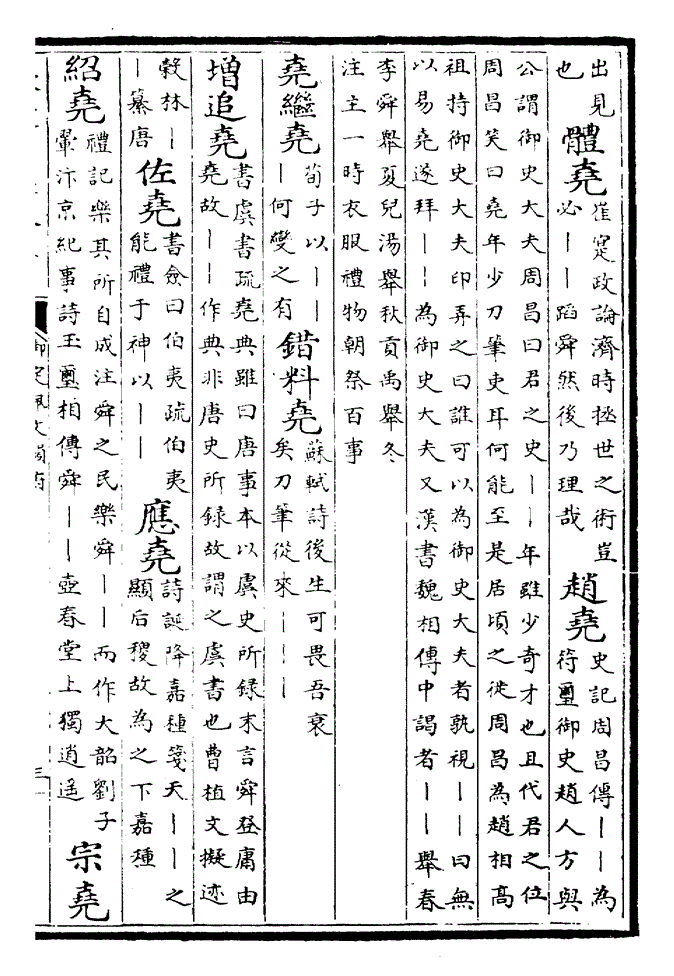 出見
也
體堯
崔寔政論濟時拯世之術豈
必丨丨蹈舜然後乃理哉
趙堯
史記周昌傳丨丨為
符璽御史趙人方與
公謂御史大夫周昌曰君之史丨丨年雖少奇才也且代君之位
周昌笑曰堯年少刀筆吏耳何能至是居頃之徙周昌為趙相高
祖持御史大夫印弄之曰誰可以為御史大夫者孰視丨丨曰無
以易堯遂拜丨丨為御史大夫又漢書魏相傳中謁者丨丨舉春
李舜舉夏兒湯舉秋貢禹舉冬
注主一時衣服禮物朝祭百事
堯繼堯
荀子以丨丨
丨何變之有
錯料堯
蘇軾詩後生可畏吾衰
矣刀筆從來丨丨丨
增追堯
書虞書疏堯典雖曰唐事本以虞史所録末言舜登庸由
堯故丨丨作典非唐史所録故謂之虞書也曹植文擬迹
穀林丨
丨纂唐
佐堯
書僉曰伯夷疏伯夷
能禮于神以丨丨
應堯
詩誕降嘉種箋天丨丨之
顯后稷故為之下嘉種
紹堯
禮記樂其所自成注舜之民樂舜丨丨而作大韶劉子
翬汴京紀事詩玉璽相傳舜丨丨壺春堂上獨逍遥
宗堯
御定佩文韻府